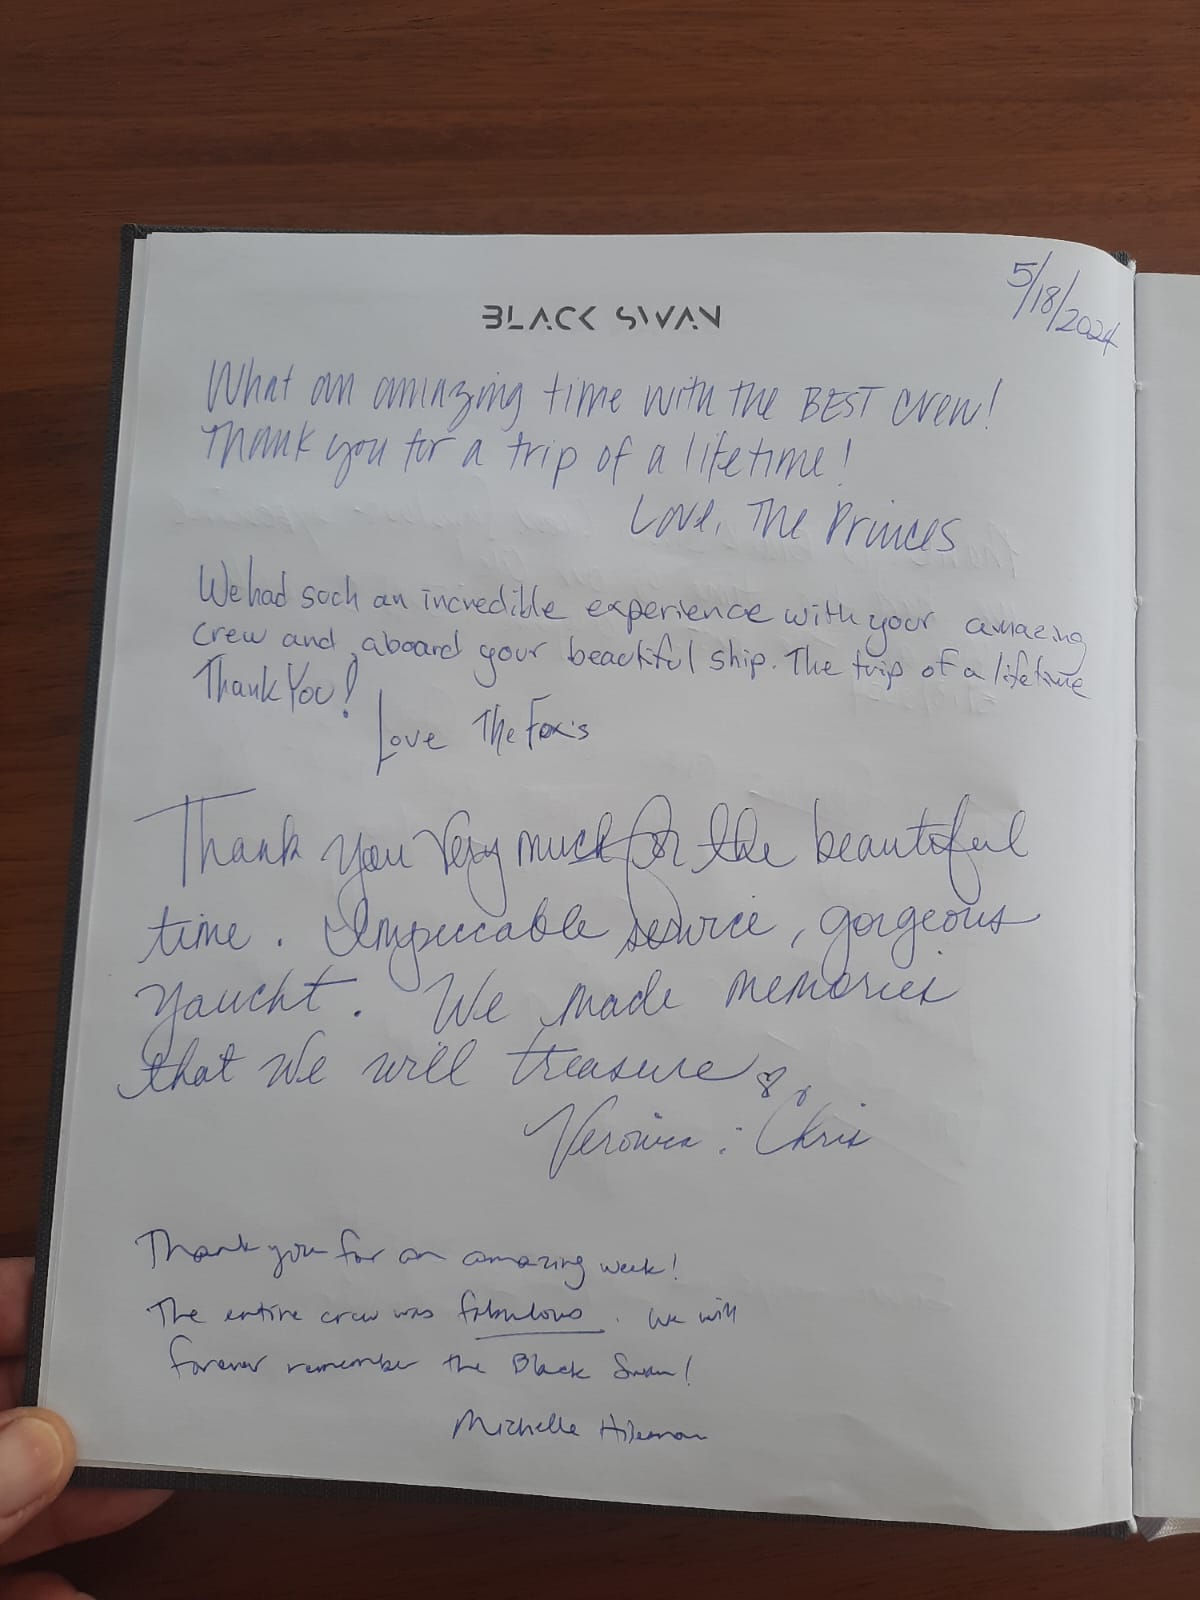 5/18/2024
BLACK SWAN
What an amazing time with the BEST crew!
Thank you for a trip of a lifetime!
Love, The Princes
We had such an incredible experience with your amazing
crew and aboard your beautiful ship. The trip of a lifetime
Thank You!
Love The Fox's
Thank you very much for the beautiful
time. Impeccable service, gorgeous
yaucht. We made memories
that we will treasure
Veronica : Chris
Thank you for an amazing week!
The entire crew was fabulous. We will
forever remember the Black Swan!
Michelle